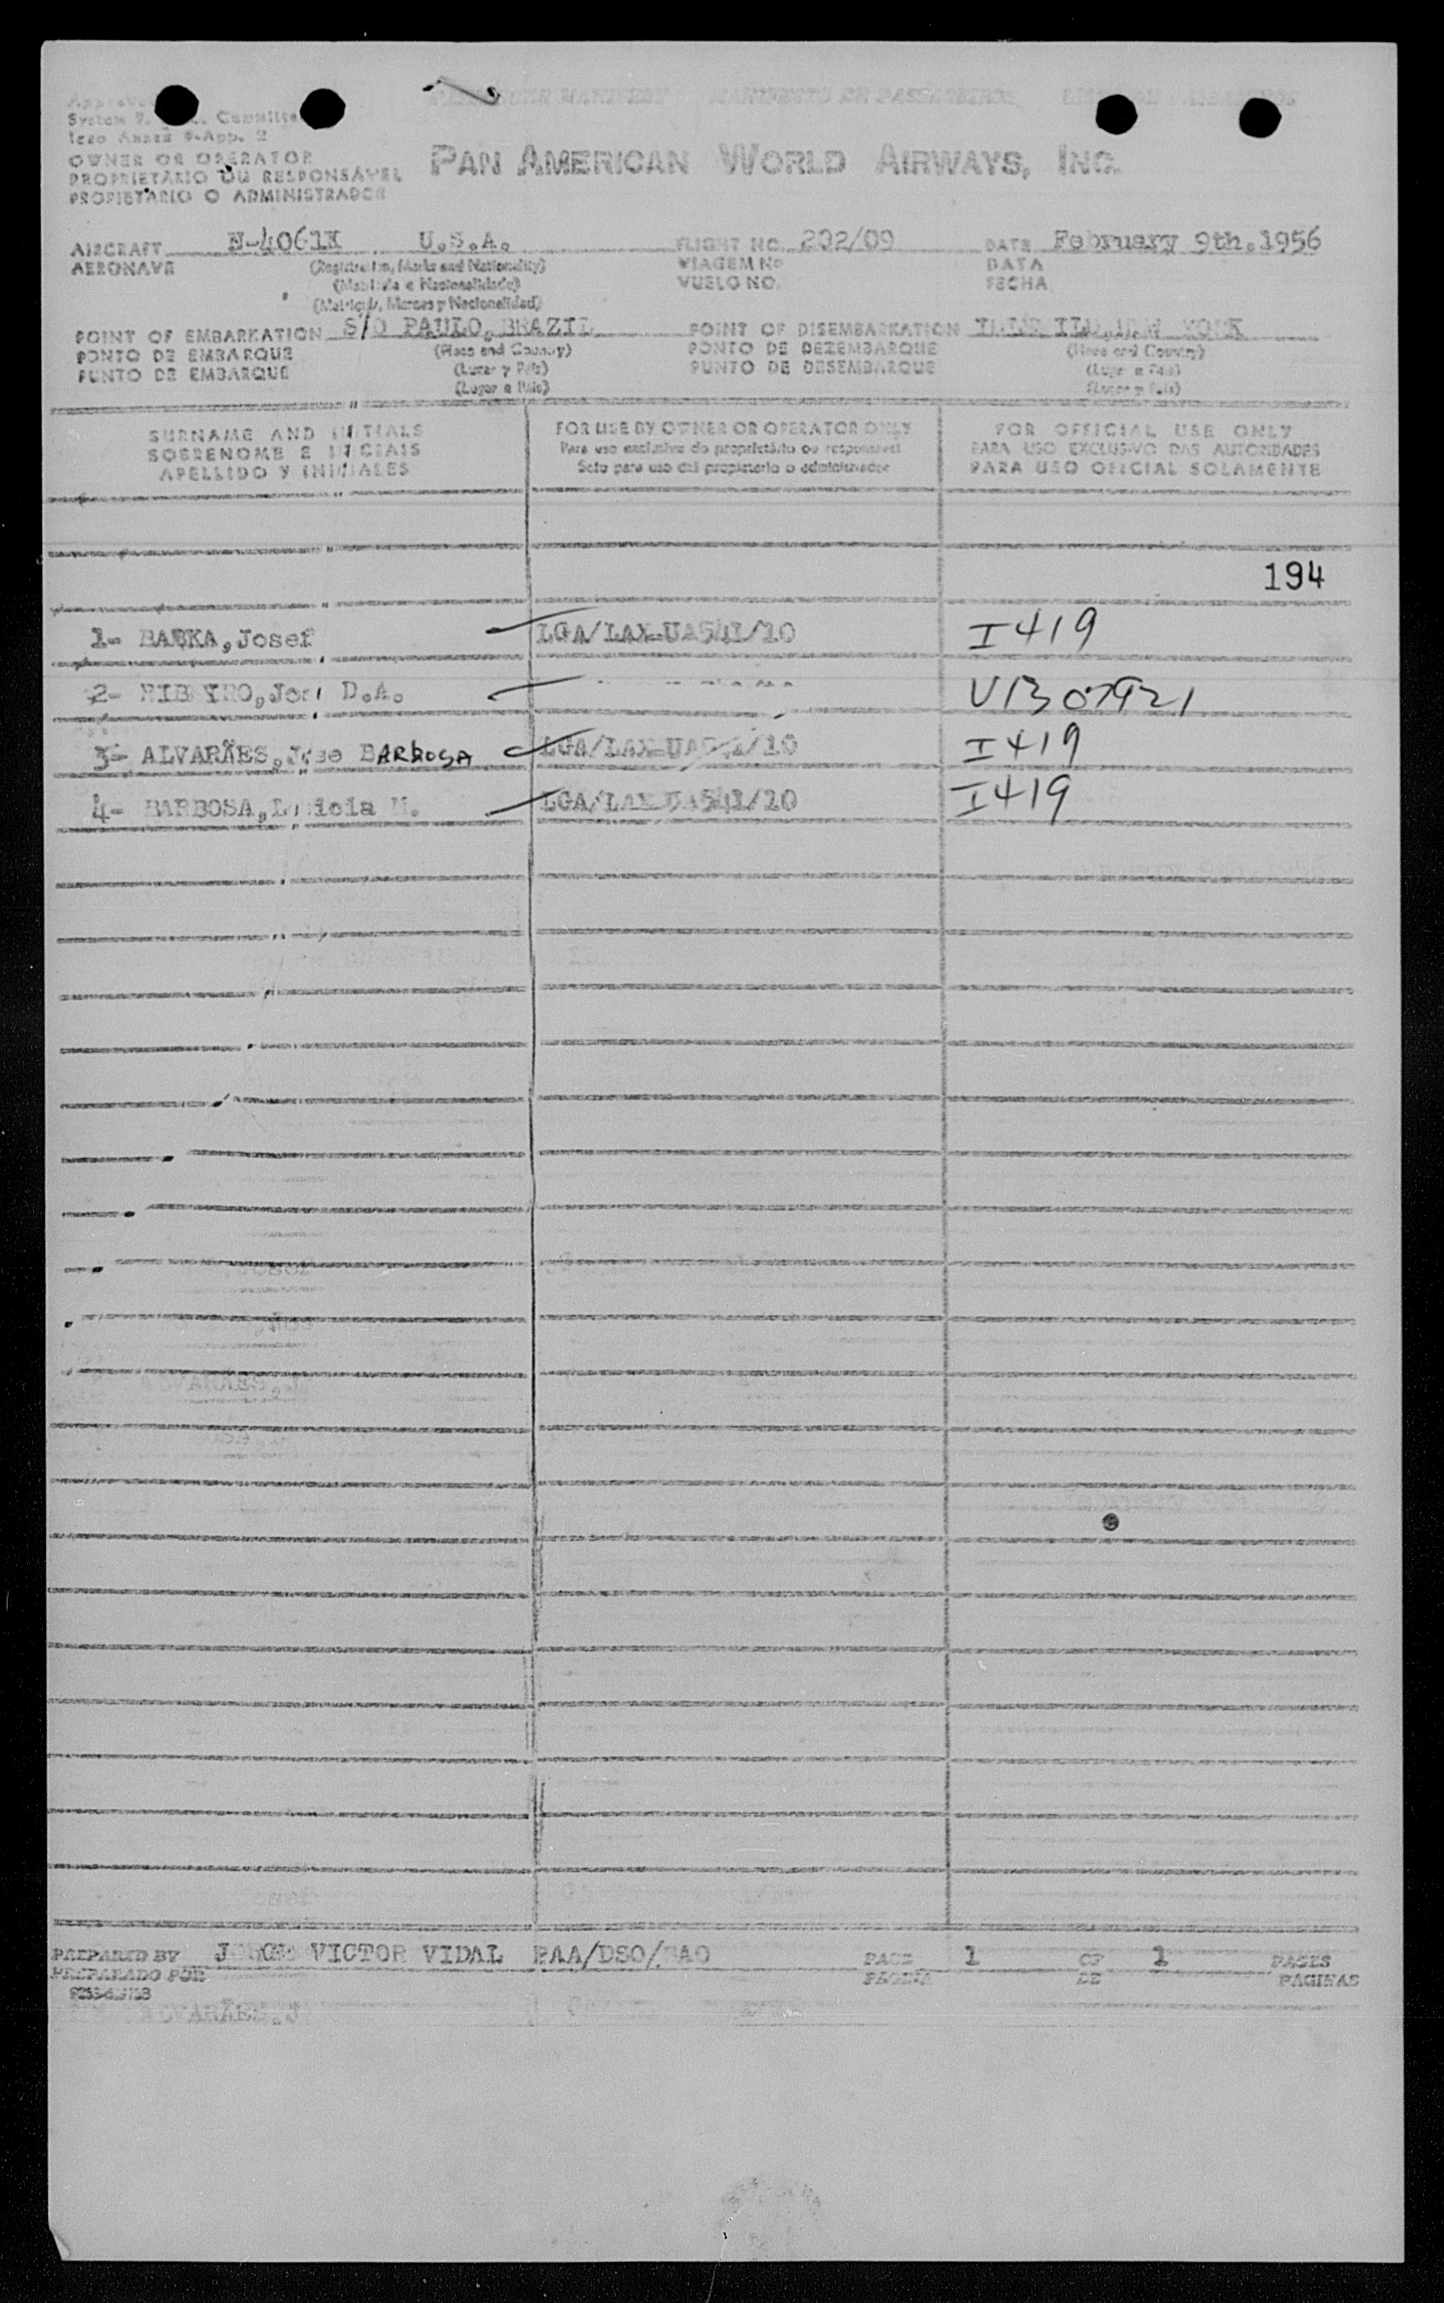 PASSENGER MANIFEST MANIFESTO DE PASSAGEIROS
System
OWNER OR OPERATOR
PROPRIETÁRIO OU RESPONSÁVEL
PROPIETARIO O ADMINISTRADOR
PAN AMERICAN WORLD AIRWAYS, INC.
AIRCRAFT N-4061K U.S.A. FLIGHT NO. 202/09 DATE February 9th.1956
AERONAVE (Registration, Marks and Nationality) VIAGEM No DATA
(Matrícula e Nacionalidade) VUELO NO. FECHA
(Matrícula, Marcas y Nacionalidad)
POINT OF EMBARKATION S/O PAULO, BRAZIL POINT OF DISEMBARKATION YORK
PONTO DE EMBARQUE (Place and Country) PONTO DE DEZEMBARQUE (Place and Country)
PUNTO DE EMBARQUE (Lugar y País) PUNTO DE DESEMBARQUE (Lugar e País)
(Lugar e País) (Lugar y País)
SURNAME AND INITIALS FOR USE BY OWNER OR OPERATOR ONLY FOR OFFICIAL USE ONLY
SOBRENOME E INICIAIS Para uso exclusivo do proprietário ou responsável PARA USO EXCLUSIVO DAS AUTORIDADES
APELLIDO Y INICIALES Solo para uso del propietario o administrador PARA USO OFICIAL SOLAMENTE
194
1- BABKA, Josef LGA/LAX-UA541/10 I419
2- RIBEIRO, José D.A. VB 07921
3- ALVARÃES, Jose BARBOSA LGA/LAX-UA541/10 I419
4- BARBOSA, M. LGA/LAX UA541/10 I419
PREPARED BY JORGE VICTOR VIDAL PAA/DSO/SAO PAGE 1 OF 1 PAGES
PREPARADO POR PÁGINA DE PÁGINAS